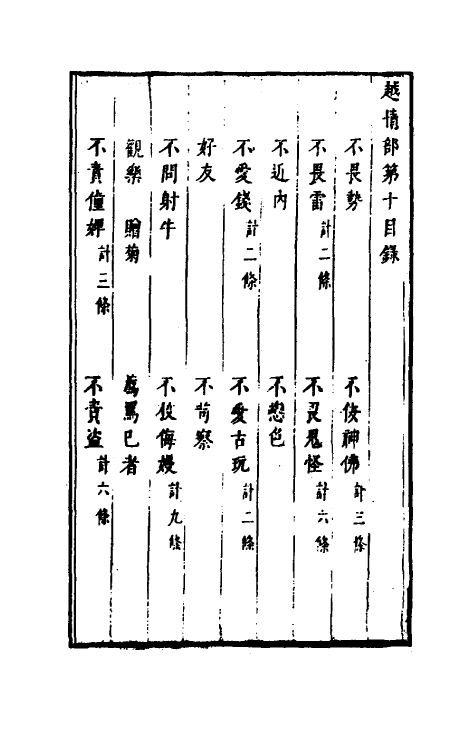 越情部第十目錄
不畏勢　不佞神佛計三條
不畏雷計二條　不畏鬼怪計六條
不近內　不戀色
不愛錢計二條　不愛古玩計二條
好友　不苛察
不問射牛　不校侮嫚計九條
觀樂　贈菊　薦罵己者
不責僮婢計三條　不責盜計六條